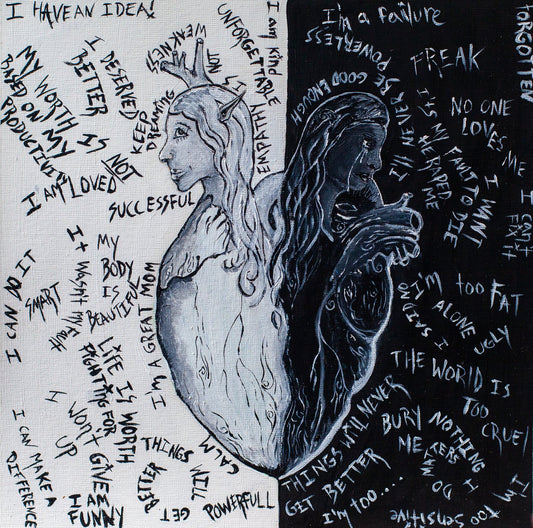 I HAVE AN IDEA!
I DESERVED
BETTER
MY WORTH IS NOT
BASED ON MY
PRODUCTIVITY
I AM LOVED
KEEP
DREAMING
SUCCESSFUL
EMPATHY IS NOT
WEAKNESS
I am kind
UNFORGETTABLE
I CAN DO IT
SMART
It wasnt my
FAULT
MY
BODY
IS
BEAUTIFUL
I'M A GREAT MOM
LIFE IS WORTH
FIGHTING FOR
I WON'T GIVE
UP
I AM
FUNNY
I CAN MAKE A
DIFFERENCE
THINGS WILL
GET
BETTER
CALM
POWERFULL
I'm a failure
POWERLESS
I'll NEVER BE GOOD ENOUGH
FREAK
FORGOTTEN
NO ONE
LOVES ME
ITS MY FAULT
HE RAPED
ME
I WANT
TO DIE
I CAN'T
I'm TOO FAT
ALONE
UGLY
I SAID NO
THE WORLD IS
TOO CRUEL
THINGS WILL NEVER
GET BETTER
BURY
ME
NOTHING
I'm too....
I'm
too sensitive